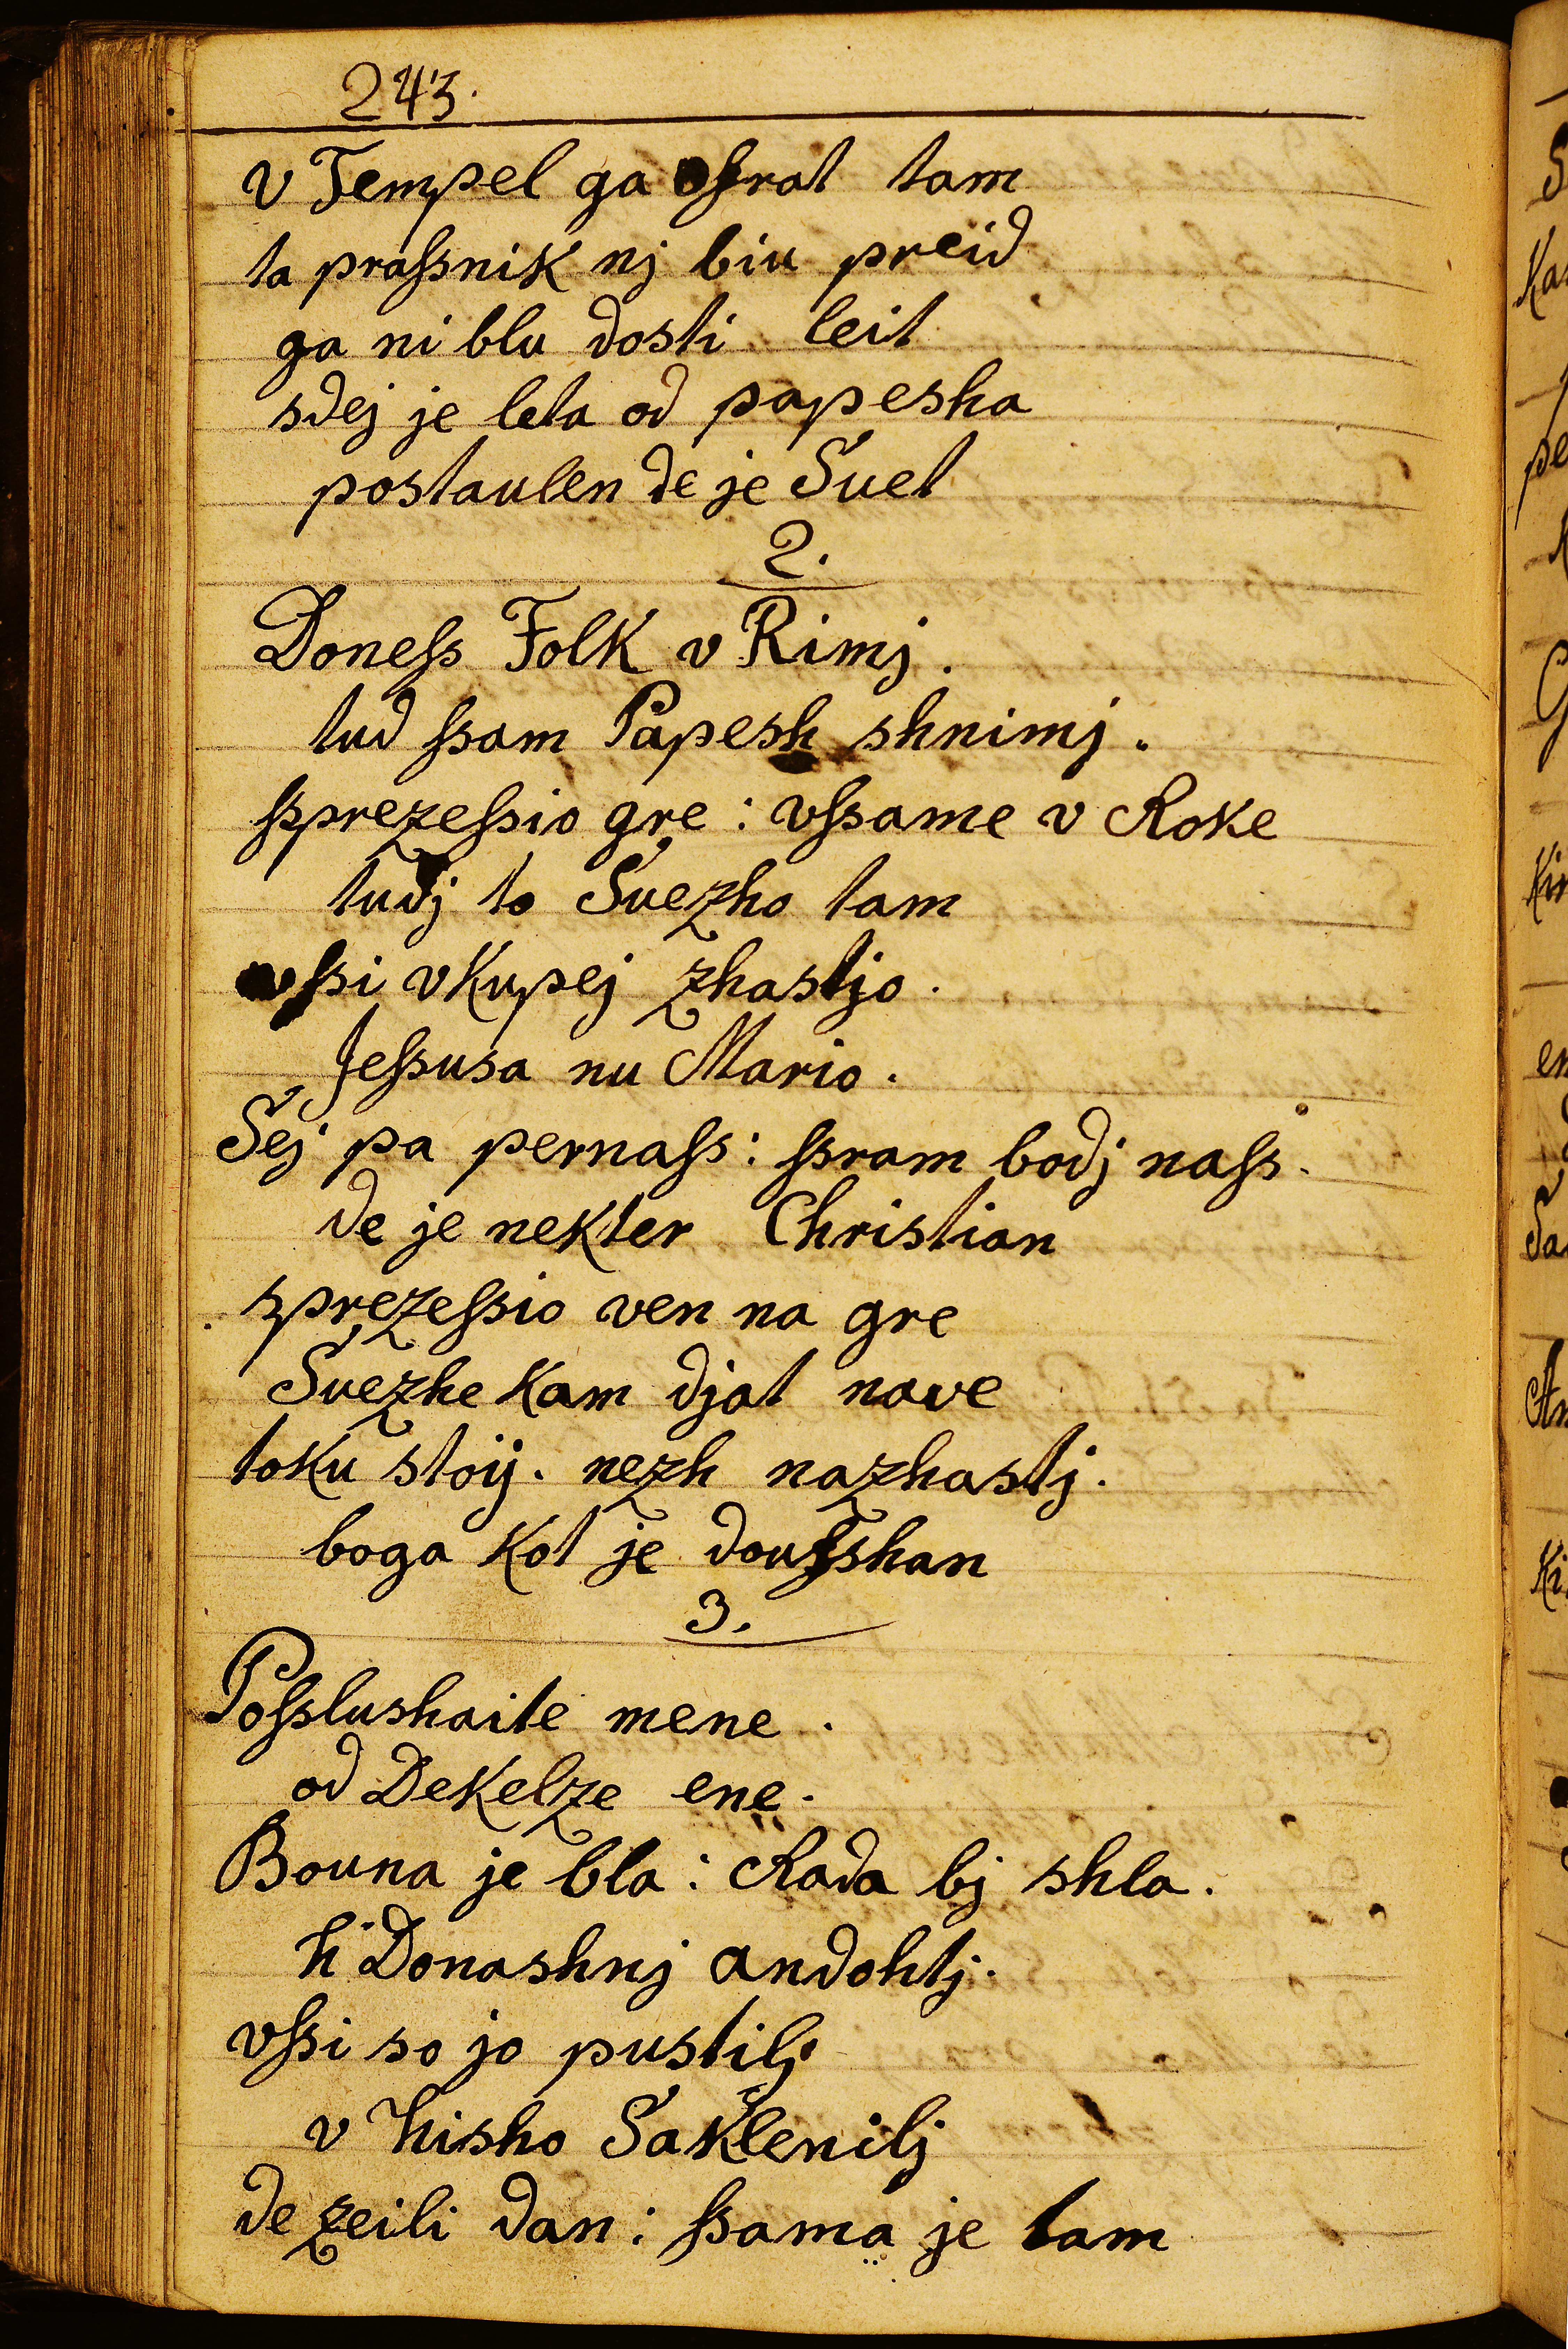 243.
v Tempel ga ofrat tam
ta praſsnik nj biu preid
ga ni blu dosti leit
sdej je leta od papesha
postaulen de je Suet
2.
Doneſs Folk v Rimj.
tud ſsam Papesh shnimj.
ſsprezeſsio gre : vſsame v Roke
tudj to Suezho tam
vſsi vkupej zhastjo.
Jeſsusa nu Mario.
Sej pa pernaſs : ſsram bodj naſs.
de je nekter Christian
sprezeſsio ven na gre
Suezhe kam djat nave
toku stoij. nezh nazhastj.
boga kot je douſshan
3.
Poſslushaite mene.
od Dekelze ene.
Bouna je bla : Rada bj shla.
h Donashnj andohtj.
vſsi so jo pustilj
v hisho Saklenilj
de zeili dan : ſsama je tam